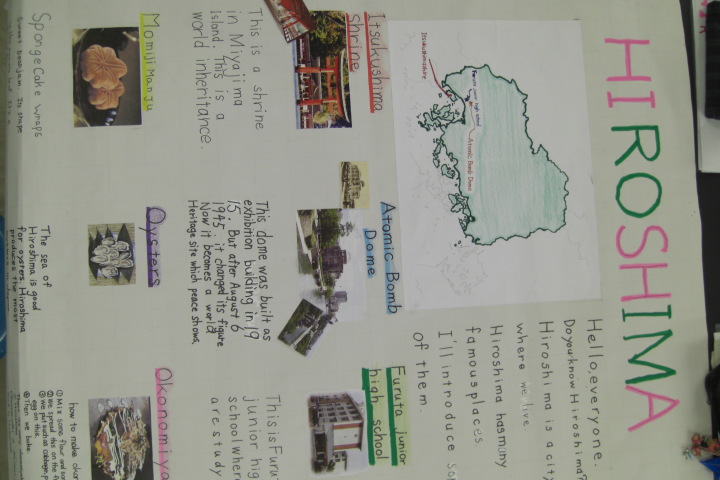 HIROSHIMA
Hello, everyone.
Do you know Hiroshima?
Hiroshima is a city
where we live
Hiroshima has many
famous places
I'll introduce
of them.
Itsukushima
Atomic Bomb Dome
Itsukushima
Shrine
This is a shrine
in Miyajima
island. This is a
world inheritance.
Atomic Bomb
Dome
This dome was built as
exhibition building in 19
15. But after August 6
1945. it changed its figure
Now it becomes a world
Heritage site which peace shows.
Furuta junior
high school
This is Furu
junior hig
school wher
are study
Momiji Manju
Sponge cake wraps
Sweet bean jam. Its shape
Oysters
The sea of
Hiroshima is good
for oysters Hiroshima
produces the most
Okonomiya
how to make
① Mix some flour and
② We spread this on the
③ We put such as cabbage,
egg on this.
④ Then we bake